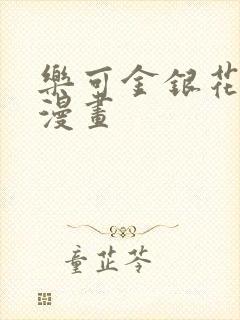 樂可金銀花
漫畫
童芷苓